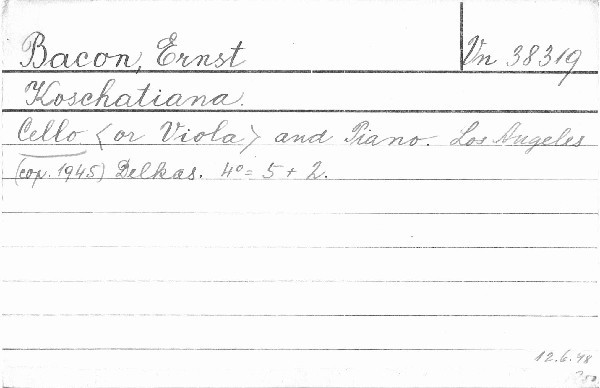 Bacon, Ernst
Vn 38319
Koschatiana.
Cello <or Viola> and Piano. Los Angeles
(cop. 1945) Delkas. 4° = 5 + 2.
12.6.48